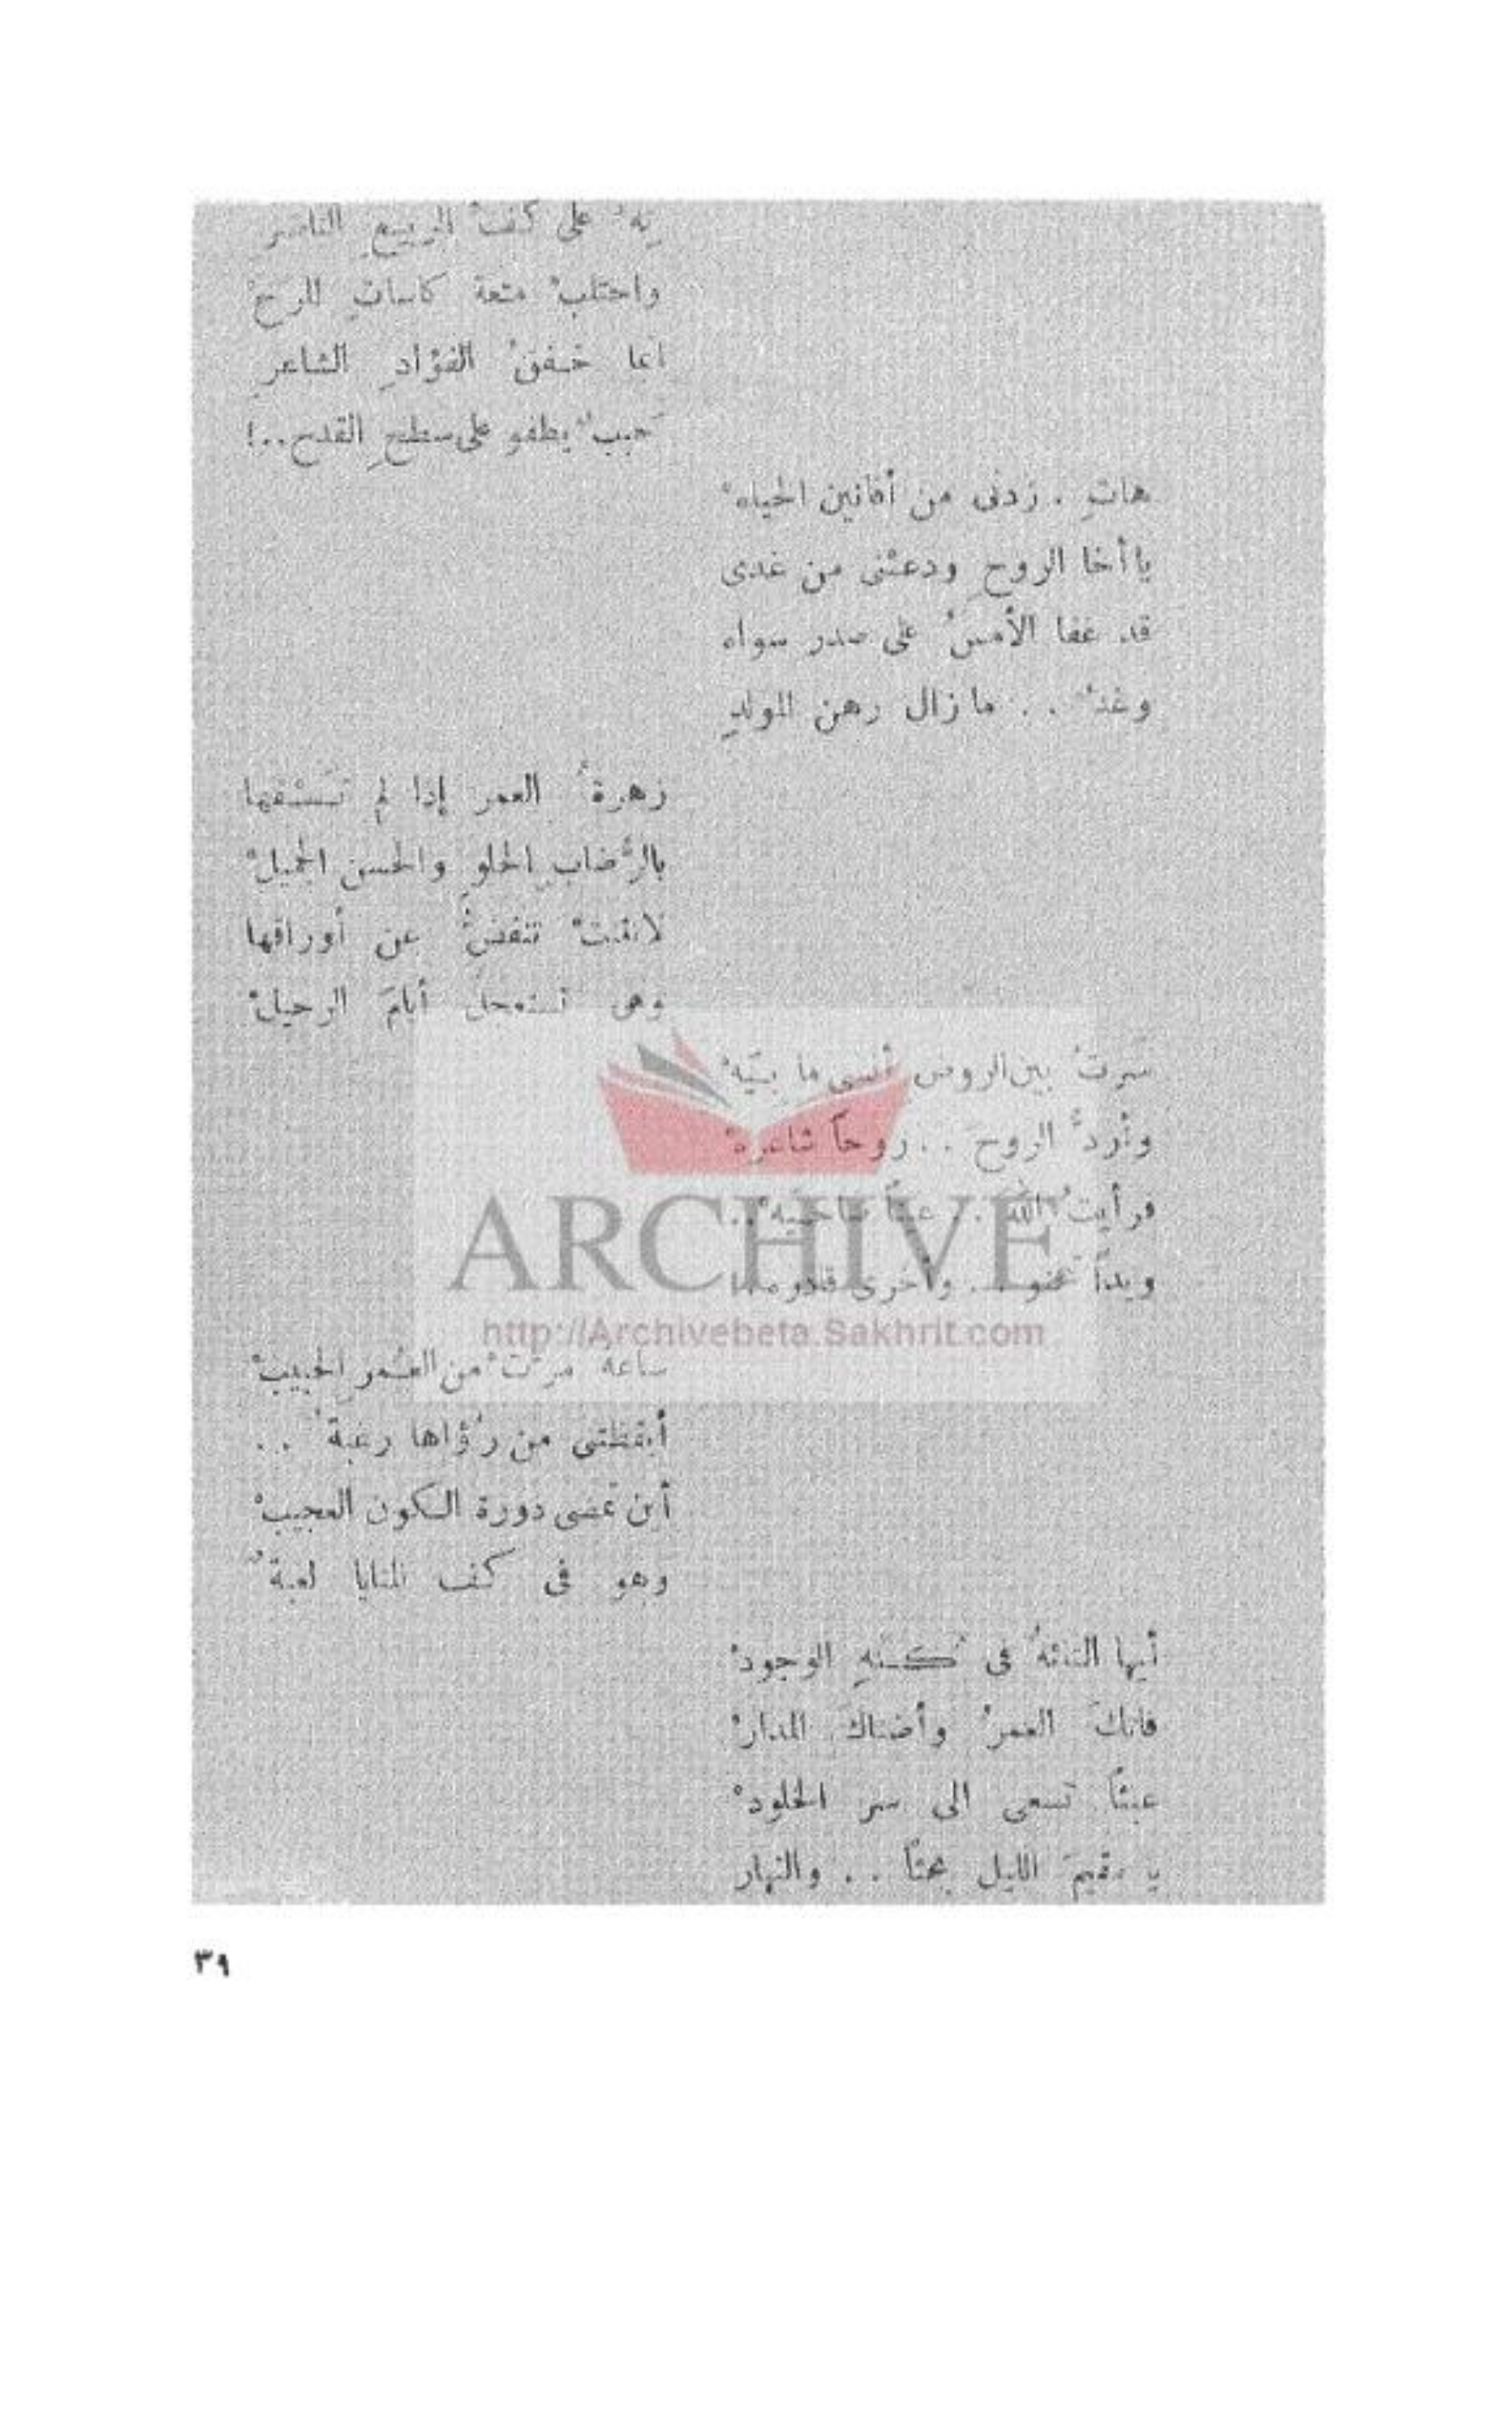 تِهْ على كفّ الربيعِ الناضرِ
واحتلبْ متعة كاساتِ المرحْ
انما خفقُ الفؤادِ الشاعرِ
حَببٌ يطفو على سطحِ القدح..!
هاتِ . زدنى من أفانين الحياهْ
يا أخا الروحِ ودعْنى من غدى
قد غفا الأمسُ على صدر سواه
وغدٌ . . ما زال رهن المولدِ
زهرةُ العمر إذا لم تَسْقها
بالرُّضابِ الحلوِ والحسن الجميلْ
لانثنتْ تنفضُ عن أوراقها
وهى تستعجلُ أيامَ الرحيلْ
سرتُ بين الروض أنسى ما بيَهْ
وأردُّ الروحَ . . روحاً شاعرهْ
فرأيتُ اللهَ . .
ويداً تمحو . . وأخرى
ساعةٌ مرّتْ من العُمر الحبيبْ
أيقظتنى من رُؤاها رغبةٌ . .
أين تمضى دورة الكون العجيبْ
وهو فى كف المنايا لعبةٌ
أيها التائهُ فى كُنهِ الوجودْ
فاتكَ العمرُ وأضناكَ المدارْ
عبثاً تسعى الى سر الخلودْ
يا مقيمَ الليل بحثاً . . والنهار
ARCHIVE
http://Archivebeta.Sakhrit.com
٣٩